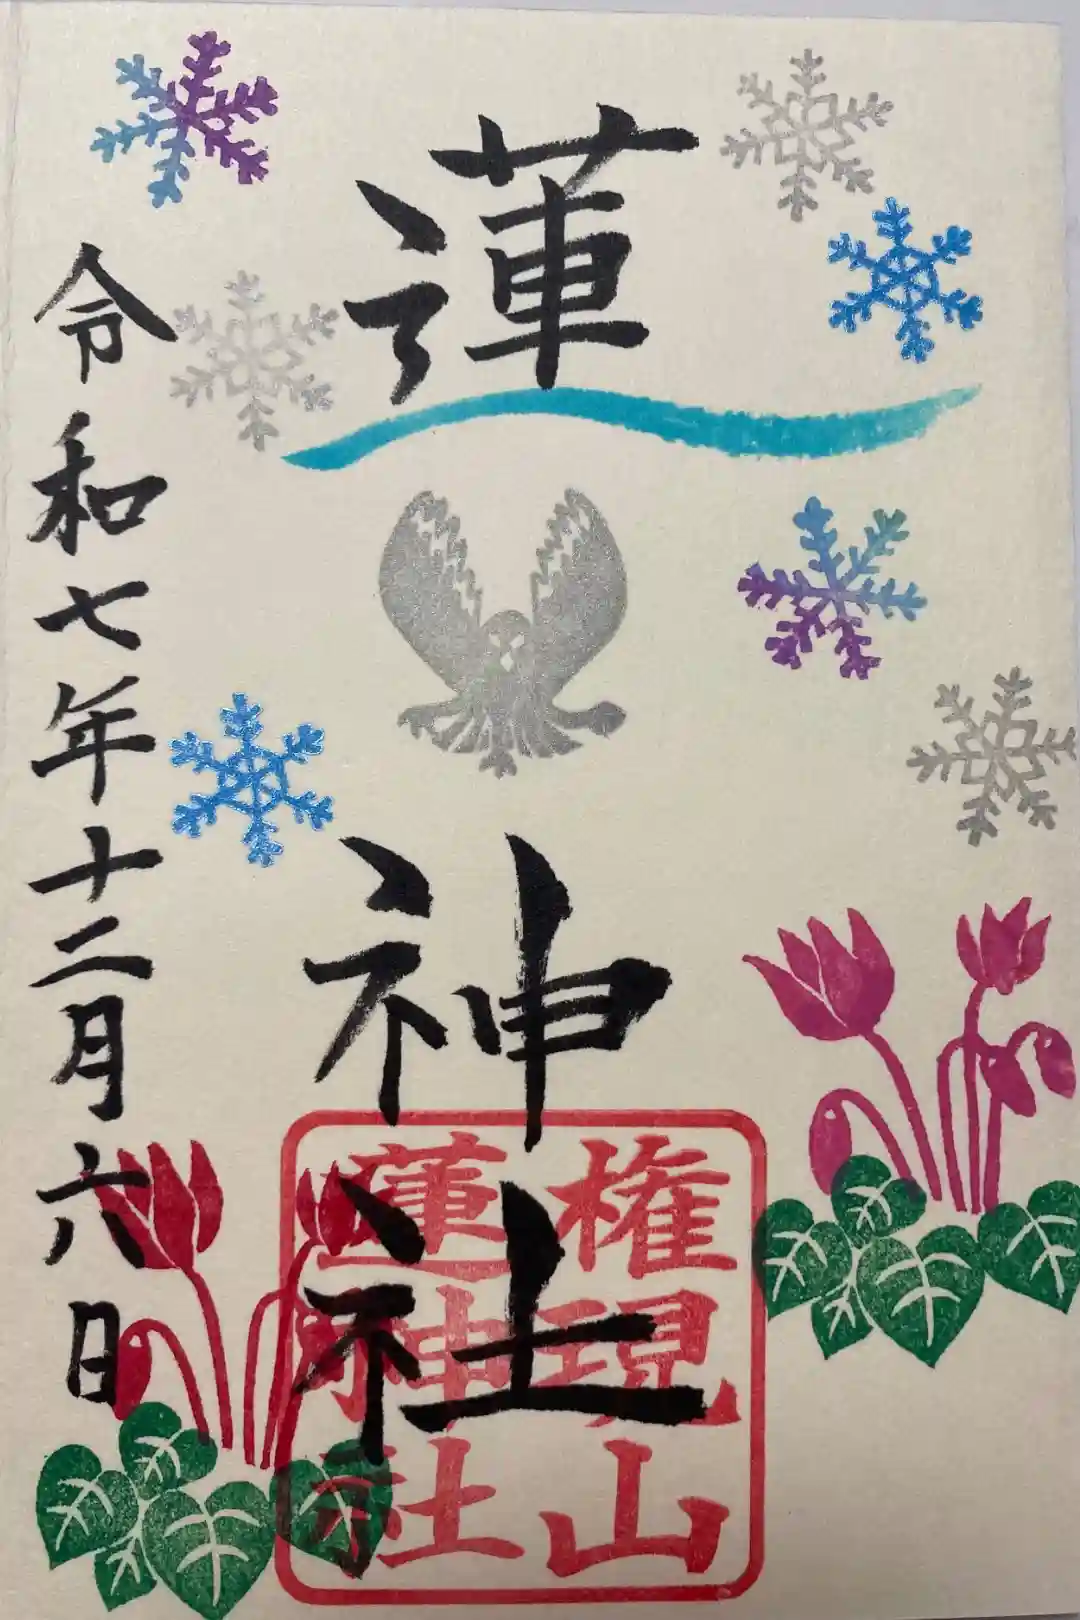 蓮
神
社
権現山
蓮神社
令和七年十二月六日